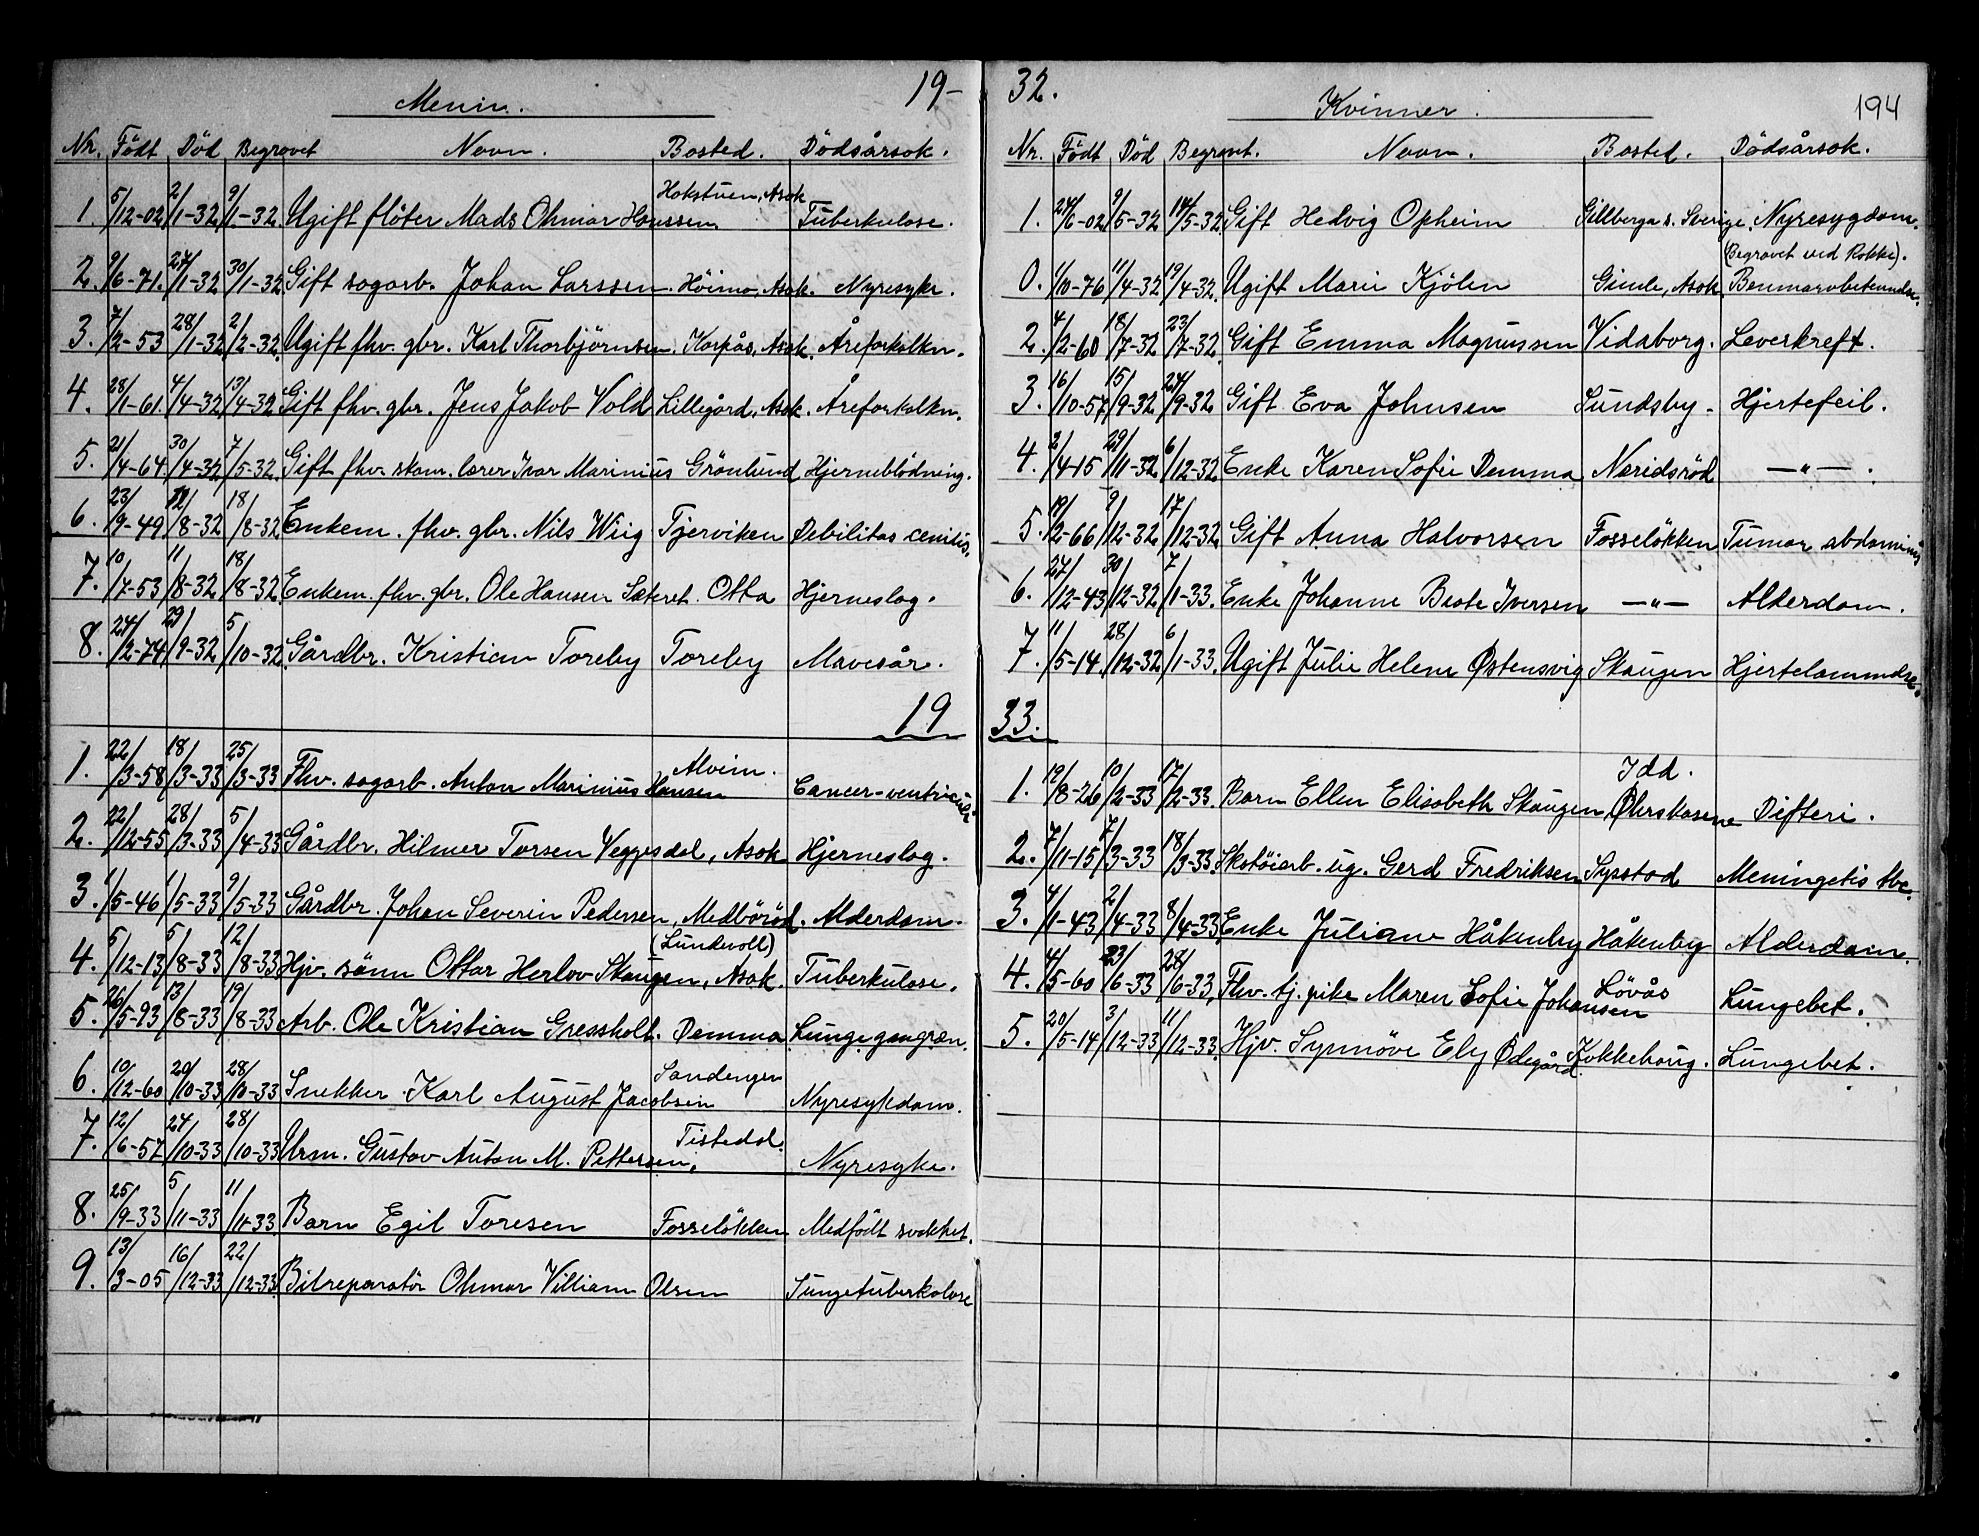 19-
Menn.
Nr. Født Død Begravet Navn. Bosted. Dødsårsak.
Hakstuen, Asak
1. 5/12-02 2/1-32 9/1-32 Ugift fløter Mads Ohmar Hanssen Tuberkulose.
2. 9/6-71. 27/1-32 30/1-32 Gift sagarb. Johan Larssen. Asak. Nyresyke.
3. 7/2-53 28/1-32 2/2-32. Ugift fhv. gbr. Karl Thorbjørnsen, Karpås, Asak. Åreforkalkn.
4. 28/1-61. 4/4-32 13/4-32 Gift fhv. gbr. Jens Jakob Vold Lillegård, Asak. Åreforkalkn.
5. 21/4-64. 30/4-32 7/5-32. Gift fhv. skom. lærer Ivar Marinius Grönlund Hjerneblödning.
6. 23/9-49 /8-32 18/8-32 Enkem. fhv. gbr. Nils Wiig Tjerviken Debilitas cenilis.
7. 10/7-53 11/8-32 18/8-32 Enkem. fhv. gbr. Ole Hansen Sæteret. Otta Hjerneslag.
8. 24/2-74 29/9-32 5/10-32. Gårdbr. Kristian Toreby Toreby Mavesår.
19
Alvim.
1. 22/3-58 18/3-33 25/3-33 Fhv. sagarb. Anton Marinius Hansen Cancer-ventriculi.
2. 22/12-55 28/3-33 5/4-33 Gårdbr. Hilmer Torsen Veggesdal, Asak Hjerneslag.
3. 1/5-46 1/5-33 9/5-33 Gårdbr. Johan Severin Pedersen, Medbøröd. Alderdom.
(Lundvoll)
4. 5/12-13 5/8-33 12/8-33 Hjv. sönn Ottar Herlov Skaugen, Asak. Tuberkulose.
5. 26/5-93 13/8-33 19/8-33 Arb. Ole Kristian Gressholt. Demma Lungegangræn.
Sandengen
6. 10/12-60 20/10-33 28/10-33 Snekker Karl August Jacobsen Nyresykdom.
Tistedal.
7. 12/6-57 24/10-33 28/10-33 Urm. Gustav Anton M. Pettersen. Nyresyke.
8. 25/9-33 5/11-33 11/11-33 Barn Egil Toresen Fosseløkken Medfödt svakhet.
9. 13/3-05 16/12-33 22/12-33. Bilreparatör Ohmar Villiam Olsen Lungetuberkolose
32.
Kvinner.
194
Nr. Født Död Begravt. Navn. Bosted. Dödsårsak.
1. 24/6-02 9/5-32 14/5-32 Gift Hedvig Opheim Gillberga s. Sverige. Nyresygdom.
(Begravet ved Rokke).
0. 1/10-76 11/4-32 19/4-32. Ugift Marie Kjölen Gimle, Asak. Benmarvbetendse.
2. 4/2-60 18/7-32 23/7-32. Gift Emma Magnussen Vidaborg. Leverkreft.
3. 16/10-57 15/9-32 24/9-32 Gift Eva Johnsen Sundsby. Hjertefeil.
4. 2/4-15 29/11-32 6/12-32 Enke Karen Sofie Demma Næridsröd —"— .
5. 19/2-66 9/12-32 17/12-32. Gift Anna Halvorsen Fosselökken Tumor abdominis
6. 27/12-43 30/12-32 7/1-33. Enke Johanne Beate Iversen —"— Alderdom.
7. 11/5-14. 28/12-32 6/1-33. Ugift Julie Helene Østensvig Skaugen Hjertelammelse.
33.
Idd.
1. 19/8-26 10/2-33 17/2-33. Barn Ellen Elisabeth Skaugen Øhrskasene Difteri.
2. 7/11-15 7/3-33 18/3-33. Skotöiarb. ug. Gerd Fredriksen Systad Meningetis tbc.
3. 4/1-43 2/4-33 8/4-33 Enke Juliane Håkenby Håkenby Alderdom.
4. 4/5-60 23/6-33 28/6-33. Fhv. tj. pike Maren Sofie Johansen Lövås Lungebet.
5. 20/5-14 3/12-33 11/12-33. Hjv. Synnöve Ely Ødegård Kokkehaug. Lungebet.